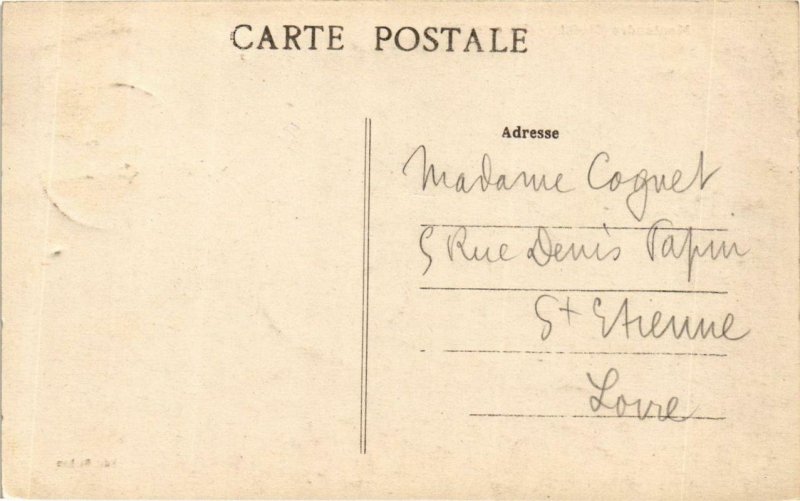 CARTE POSTALE
Adresse
Madame Cognet
5 Rue Denis Papin
St Etienne
Loire